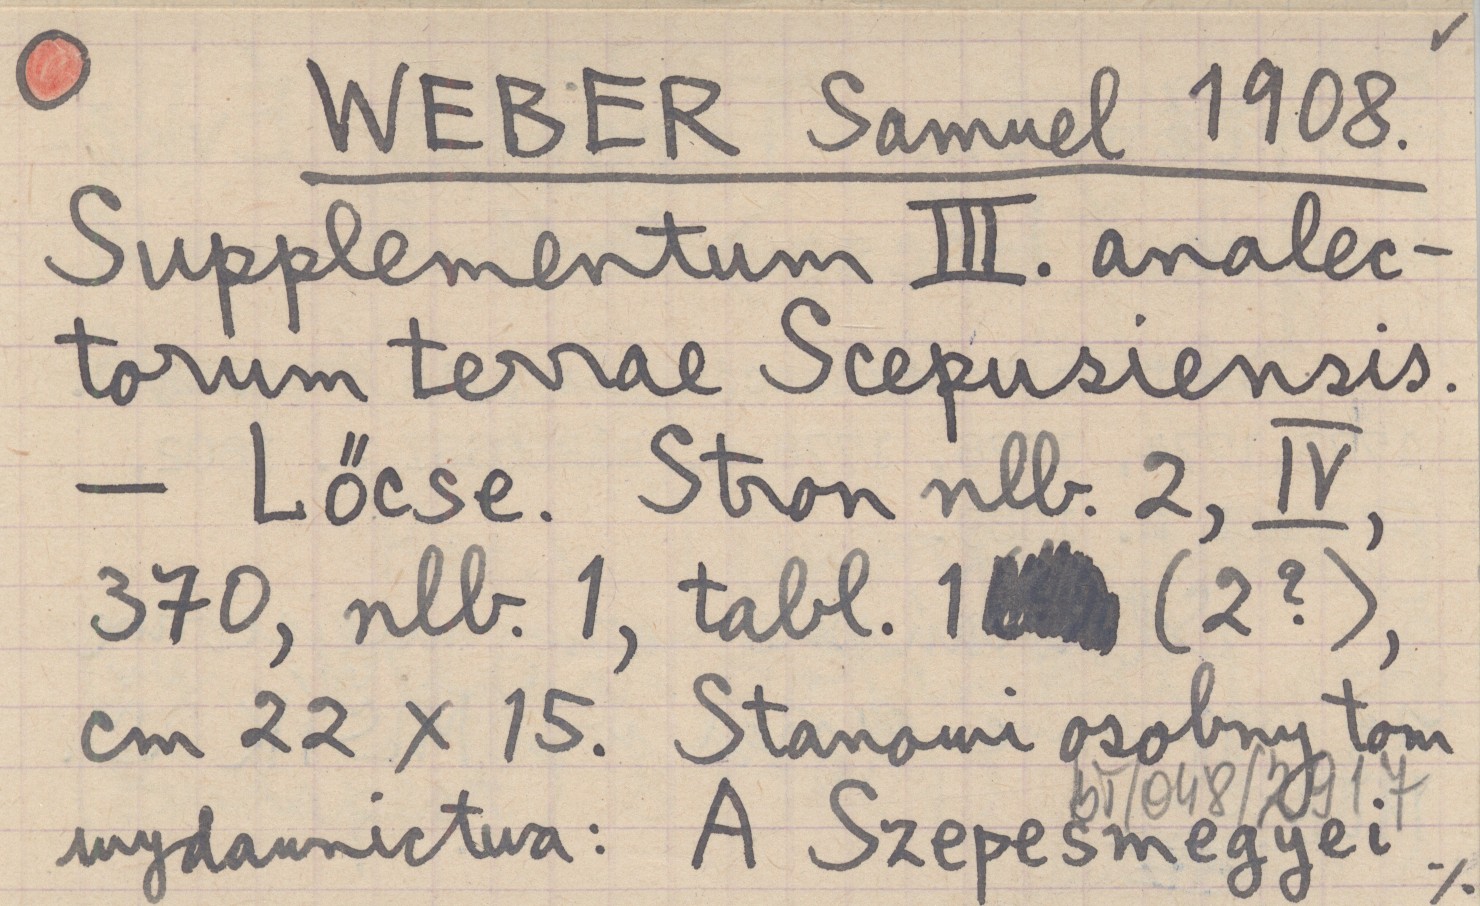 ✓
WEBER Samuel 1908.
Supplementum III. analec-
torum terrae Scepusiensis.
— Lőcse. Stron nlb. 2, IV,
370, nlb. 1, tabl. 1 (2?),
cm 22 x 15. Stanowi osobny tom
wydawnictwa: A Szepesmegyei
·/.